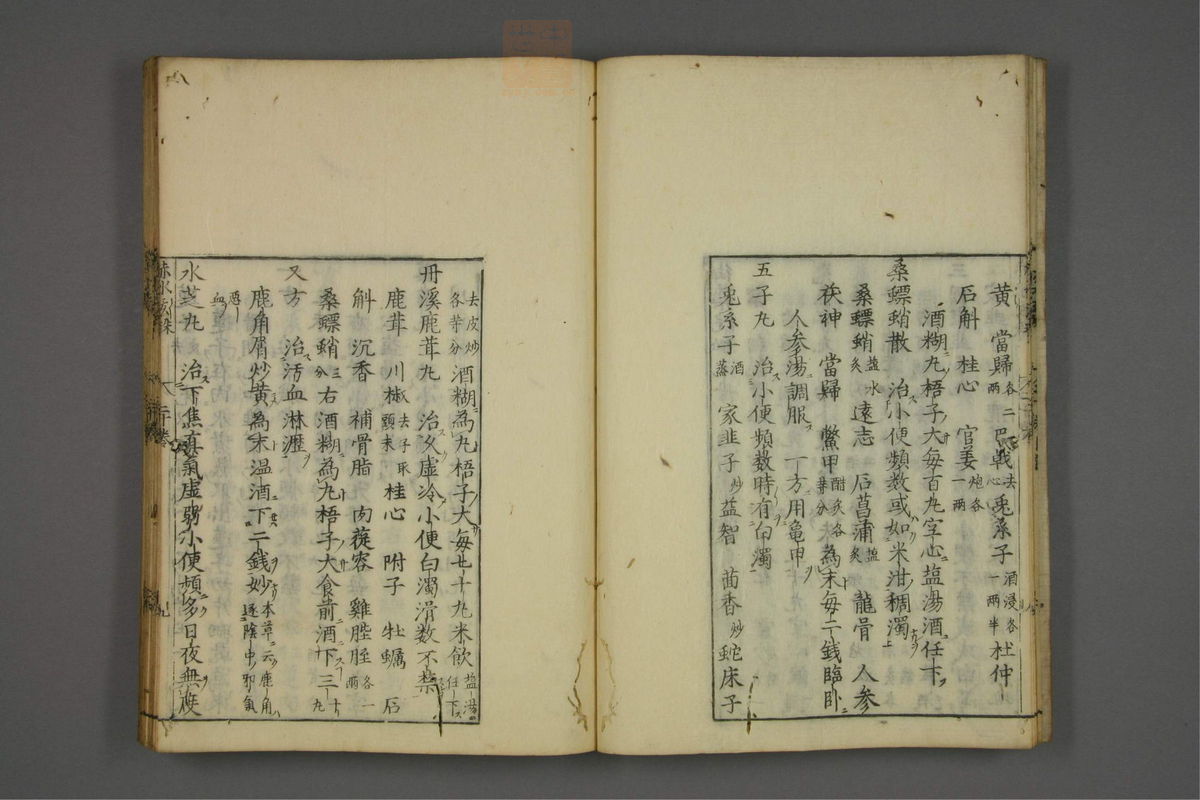 黄 當歸各二兩 巴戟去心 兎糸子酒浸各一兩半 杜仲
石斛 桂心 官姜炮各一兩
酒糊丸梧子大毎百丸空心塩湯酒任下
桑螵蛸散 治小便頻数或如米泔稠濁
桑螵蛸塩水炙 遠志 石菖蒲塩炙 龍骨 人参
茯神 當歸 鱉甲酣炙各等分 為末毎二銭臨卧
人参湯調服 一方用亀甲
五子丸 治小便頻数時有白濁
兎糸子酒蒸 家韭子炒 益智 茴香炒 蛇床子
去皮炒各等分 酒糊為丸梧子大毎七十丸米飲塩湯任下
丹溪鹿茸丸 治久虚冷小便白濁滑数不禁
鹿茸 川椒去子取頭末 桂心 附子 牡蠣 石
斛 沉香 補骨脂 肉蓯容 雞膍胵各一兩
桑螵蛸三分 右酒糊為丸梧子大食前酒下三十丸
又方 治汚血淋瀝
鹿角屑炒黄為末温酒下二銭妙本草云鹿角逐陰中邪氣
惡血
水芝丸 治下焦真氣虚弱小便頻多日夜無度
赤水玄珠